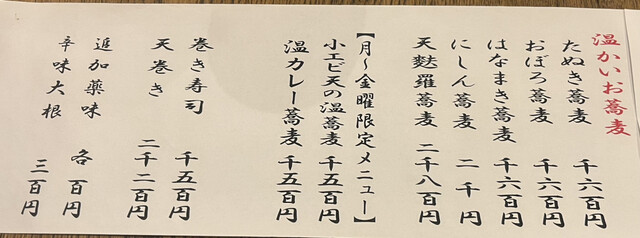 温かいお蕎麦
たぬき蕎麦 千六百円
おぼろ蕎麦 千六百円
はなまき蕎麦 千六百円
にしん蕎麦 二千円
天麩羅蕎麦 二千八百円
【月〜金曜限定メニュー】
小エビ天の温蕎麦 千五百円
温カレー蕎麦 千五百円
巻き寿司 千五百円
天巻き 二千二百円
追加薬味 各百円
辛味大根 三百円